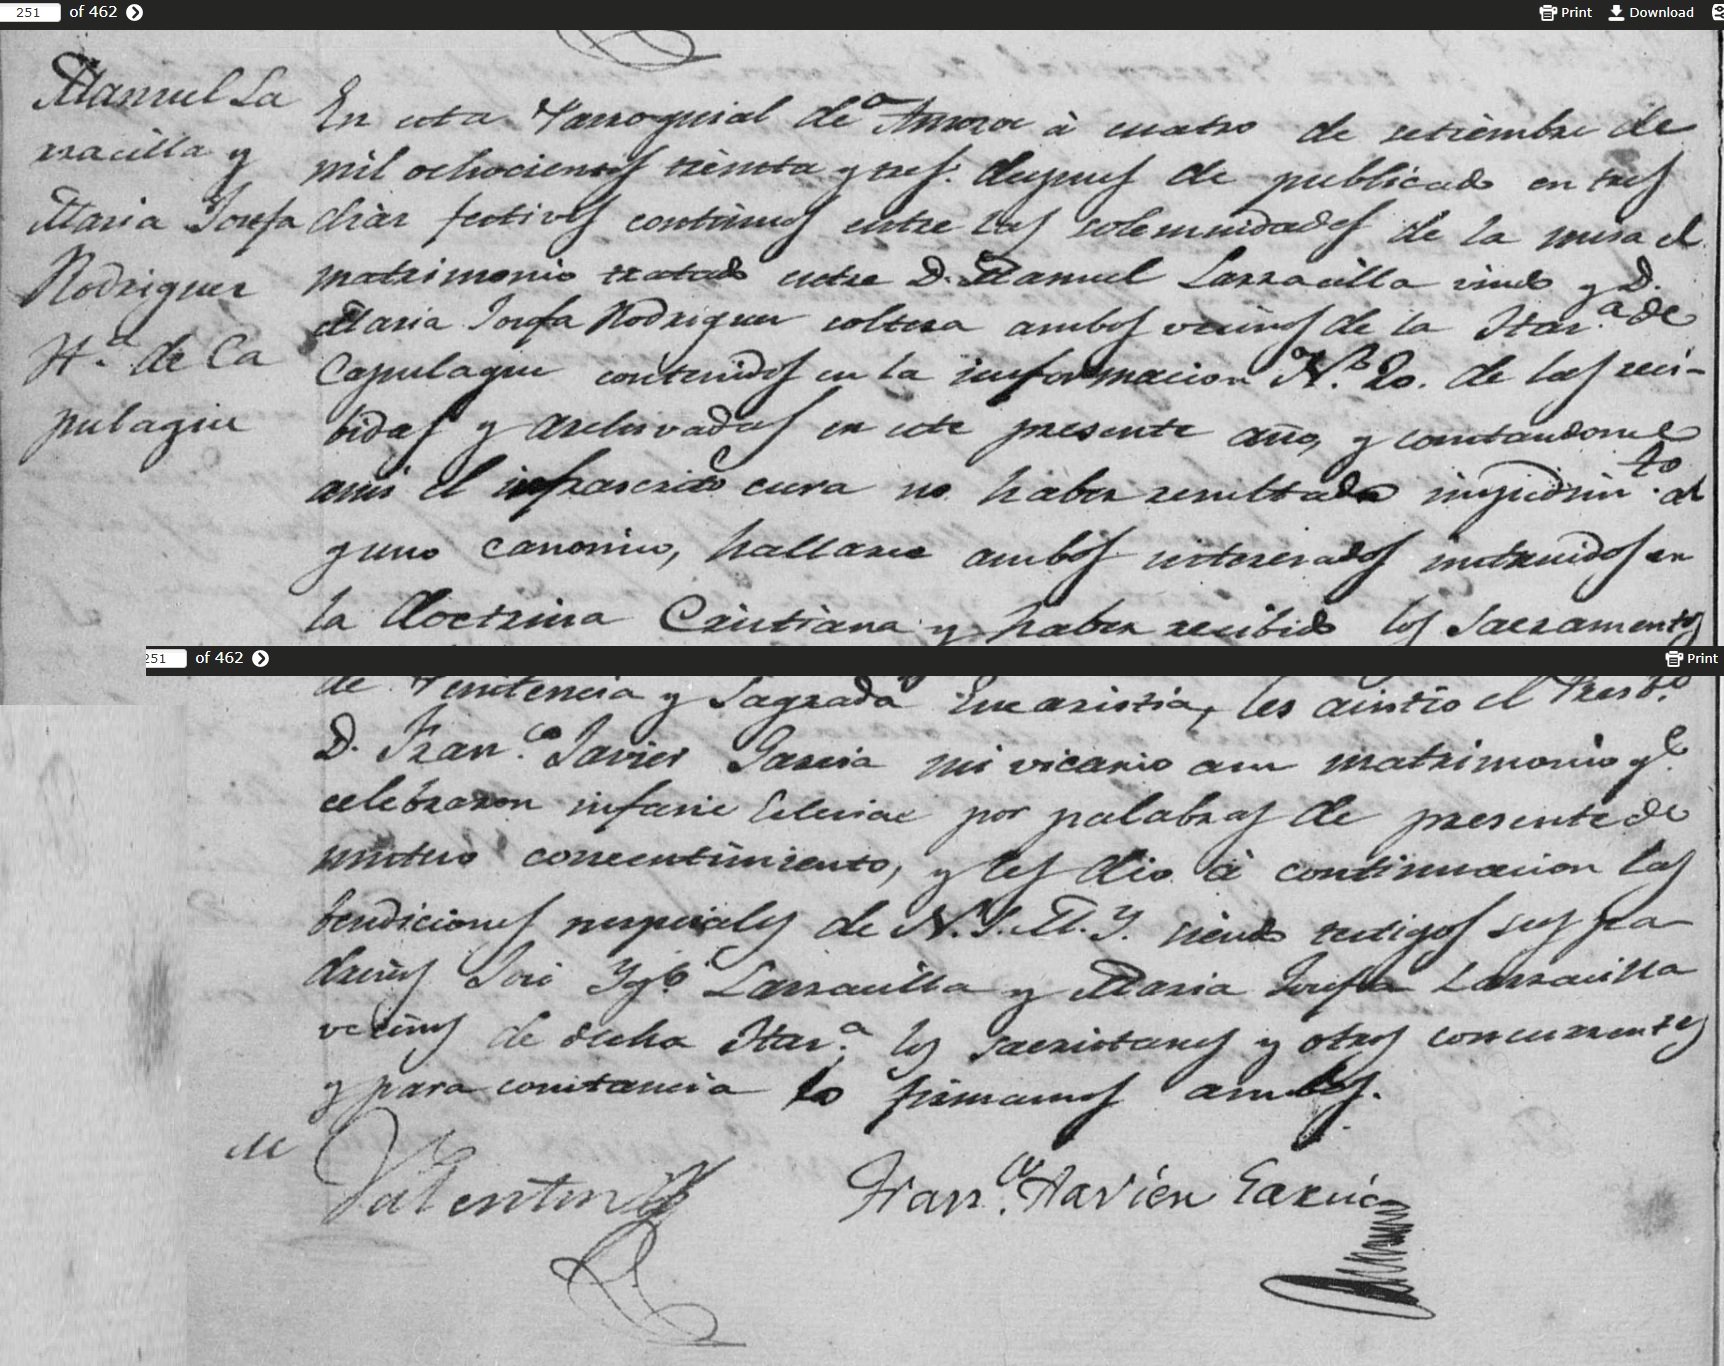 251 of 462 Print Download
Manuel La
rracilla y
Maria Josefa
Rodriguez
H.ª de Ca
pulaque
En esta Parroquial de Amoza à cuatro de setiembre de
mil ochocientos treinta y tres. despues de publicado en tres
dias festivos continuos entre las solemnidades de la misa el
matrimonio tratado entre D. Manuel Larracilla viudo y D.
Maria Josefa Rodriguez soltera ambos vecinos de la Haz.ª de
Capulaque contenidos en la informacion N.º 20. de las reci-
bidas y archivadas en este presente año, y constandome
ami el infrascrito cura no haber resultado impedim.to al
guno canonico, hallarse ambos interesados instruidos en
la doctrina Cristiana y haber recibido los sacramentos
251 of 462 Print
de Penitencia y Sagrada Eucaristia, les asistio el Presb.o
D. Fran.co Javier Garcia mi vicario asu matrimonio q.e
celebraron infacie Eclesiae por palabras de presente de
mutuo consentimiento, y les dio à continuacion las
bendiciones nupciales de N.S.M.Y. siendo testigos sus pa
drinos José Yg.o Larracilla y Maria Josefa Larracilla
vecinos de dicha Haz.ª los sacristanes y otros concurrentes
y para constancia lo firmamos ambos.
Fran.co Xavier Garcia